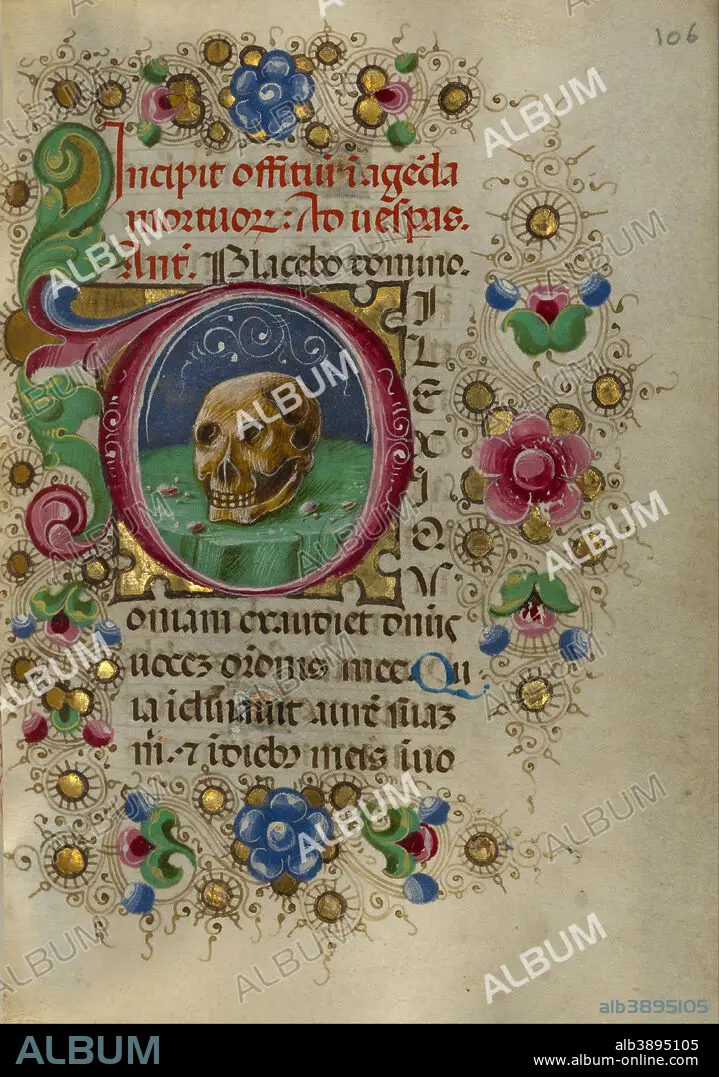 106
Incipit offitiū ī agēda
mortuoꝝ: Ad uesp̄as.
Ant̄. Placebo domino.
DILEXI QV
oniam exaudiet dn̄s
uocez or̄onis mee. Qu
ia īclinauit aurē suaz
m̄. ⁊ ī dieb⁹ meis īuo
ALBUM
alb3895105
ALBUM
alb3895105
www.album-online.com